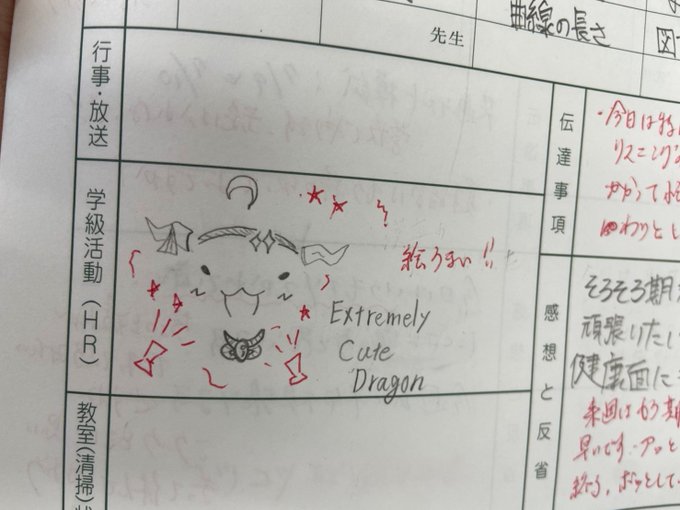 先生
曲線の長さ
図
行事・放送
学級活動（HR）
絵うまい!!
Extremely
Cute
Dragon
教室(清掃)状
伝達事項
・今日は
リスニング
かかって
感想と反省
そろそろ期
頑張りたい
健康面に
来週はもう期
早いです。